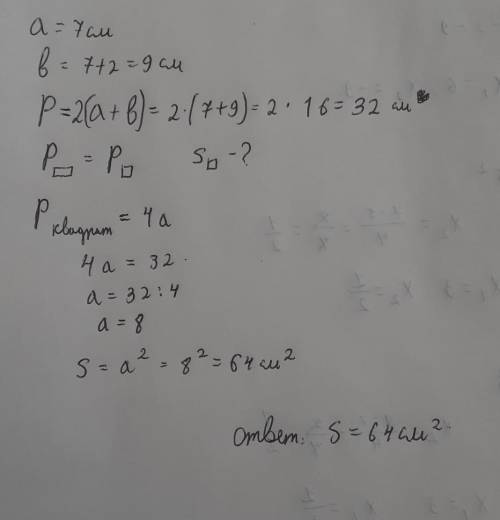 a = 7см
в = 7+2 = 9 см
P=2(a+в)= 2·(7+9)= 2 · 16 = 32 см
P▭ = P□ S□ -?
P квадрат = 4a
4a = 32
a = 32:4
a = 8
S = a² = 8² = 64 см²
Ответ: S = 64 см²